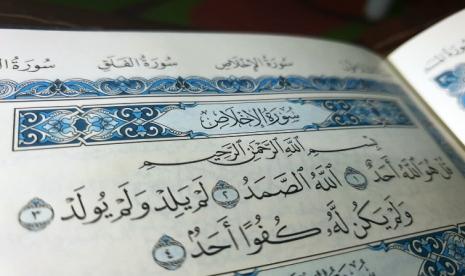 سُورَةُ الْإِخْلَاصِ سُورَةُ الْفَلَقِ سُورَةُ
سُورَةُ الْإِخْلَاصِ
بِسْمِ اللَّهِ الرَّحْمَٰنِ الرَّحِيمِ
قُلْ هُوَ اللَّهُ أَحَدٌ ١ اللَّهُ الصَّمَدُ ٢ لَمْ يَلِدْ وَلَمْ يُولَدْ ٣
وَلَمْ يَكُن لَّهُ كُفُوًا أَحَدٌ ٤